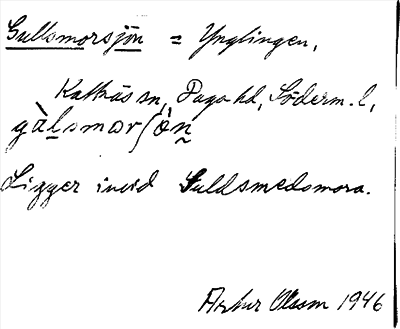 Gullsmorsjön = Ynglingen,
Kattnäs sn, Daga hd, Söderm. l,
gàlsmorʃön̰
Ligger invid Guldsmedsmora.
Artur Olsson 1946